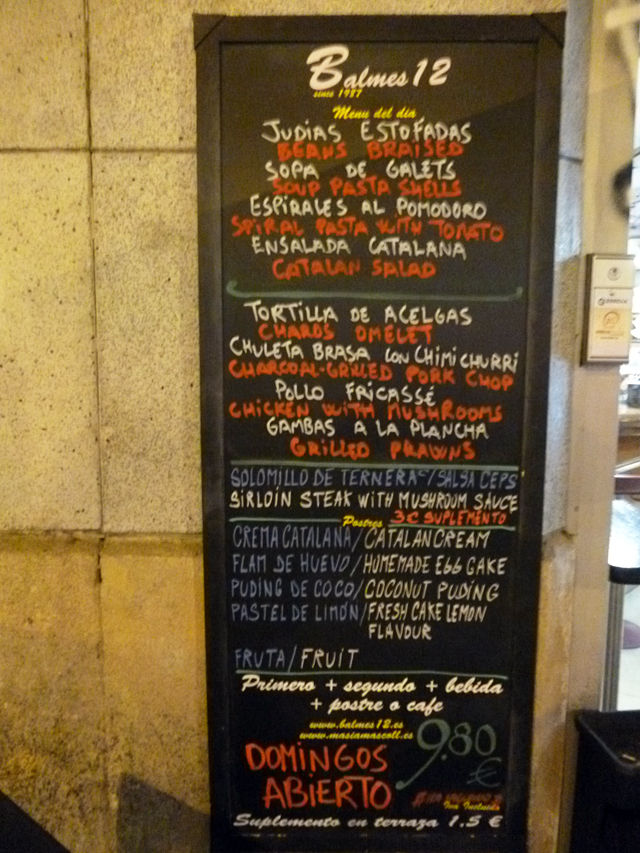 Balmes 12
since 1987
Menu del dia
JUDIAS ESTOFADAS
BEANS BRAISED
SOPA DE GALETS
SOUP PASTA SHELLS
ESPIRALES AL POMODORO
SPIRAL PASTA WITH TOMATO
ENSALADA CATALANA
CATALAN SALAD
TORTILLA DE ACELGAS
CHARDS OMELET
CHULETA BRASA CON CHIMICHURRI
CHARCOAL-GRILLED PORK CHOP
POLLO FRICASSÉ
CHICKEN WITH MUSHROOMS
GAMBAS A LA PLANCHA
GRILLED PRAWNS
SOLOMILLO DE TERNERA C/SALSA CEPS
SIRLOIN STEAK WITH MUSHROOM SAUCE
Postres 3€ SUPLEMENTO
CREMA CATALANA/CATALAN CREAM
FLAM DE HUEVO/HOMEMADE EGG CAKE
PUDING DE COCO/COCONUT PUDING
PASTEL DE LIMÓN/FRESH CAKE LEMON
FLAVOUR
FRUTA/FRUIT
Primero + segundo + bebida
+ postre o cafe
www.balmes12.es
www.masiamascoll.es
9.80 €
DOMINGOS
ABIERTO
Iva Incluido
Suplemento en terraza 1.5 €